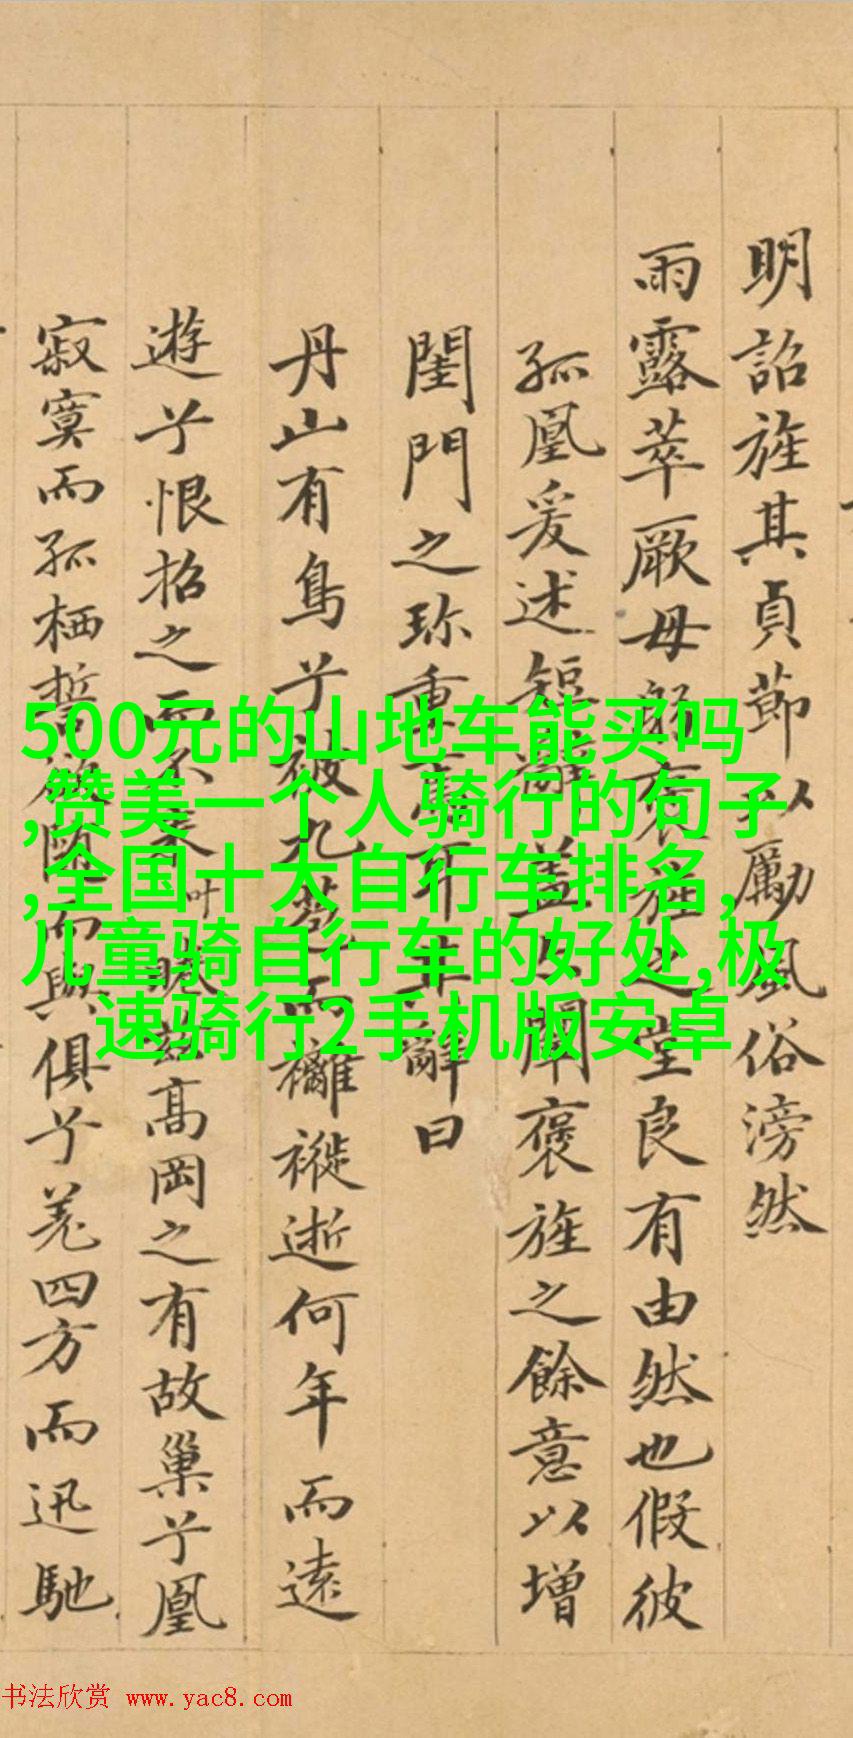 明詔旌其貞節以勵風俗滂然
雨露萃厥母躬褒旌之堂良有由然也假彼
孤凰爰述短辭蓋以闡褒旌之餘意以增
閨門之珎重耳辭曰
丹山有鳥兮被九苞而襹褷逝何年而遠
遊兮恨招之而不來叶睇茲高岡之有故巢兮凰
寂寞而孤栖誓而與俱兮羌四方而迅馳
500元的山地车能买吗
,赞美一个人骑行的句子
,全国十大自行车排名,
儿童骑自行车的好处,极
速骑行2手机版安卓
书法欣赏 www.yac8.com